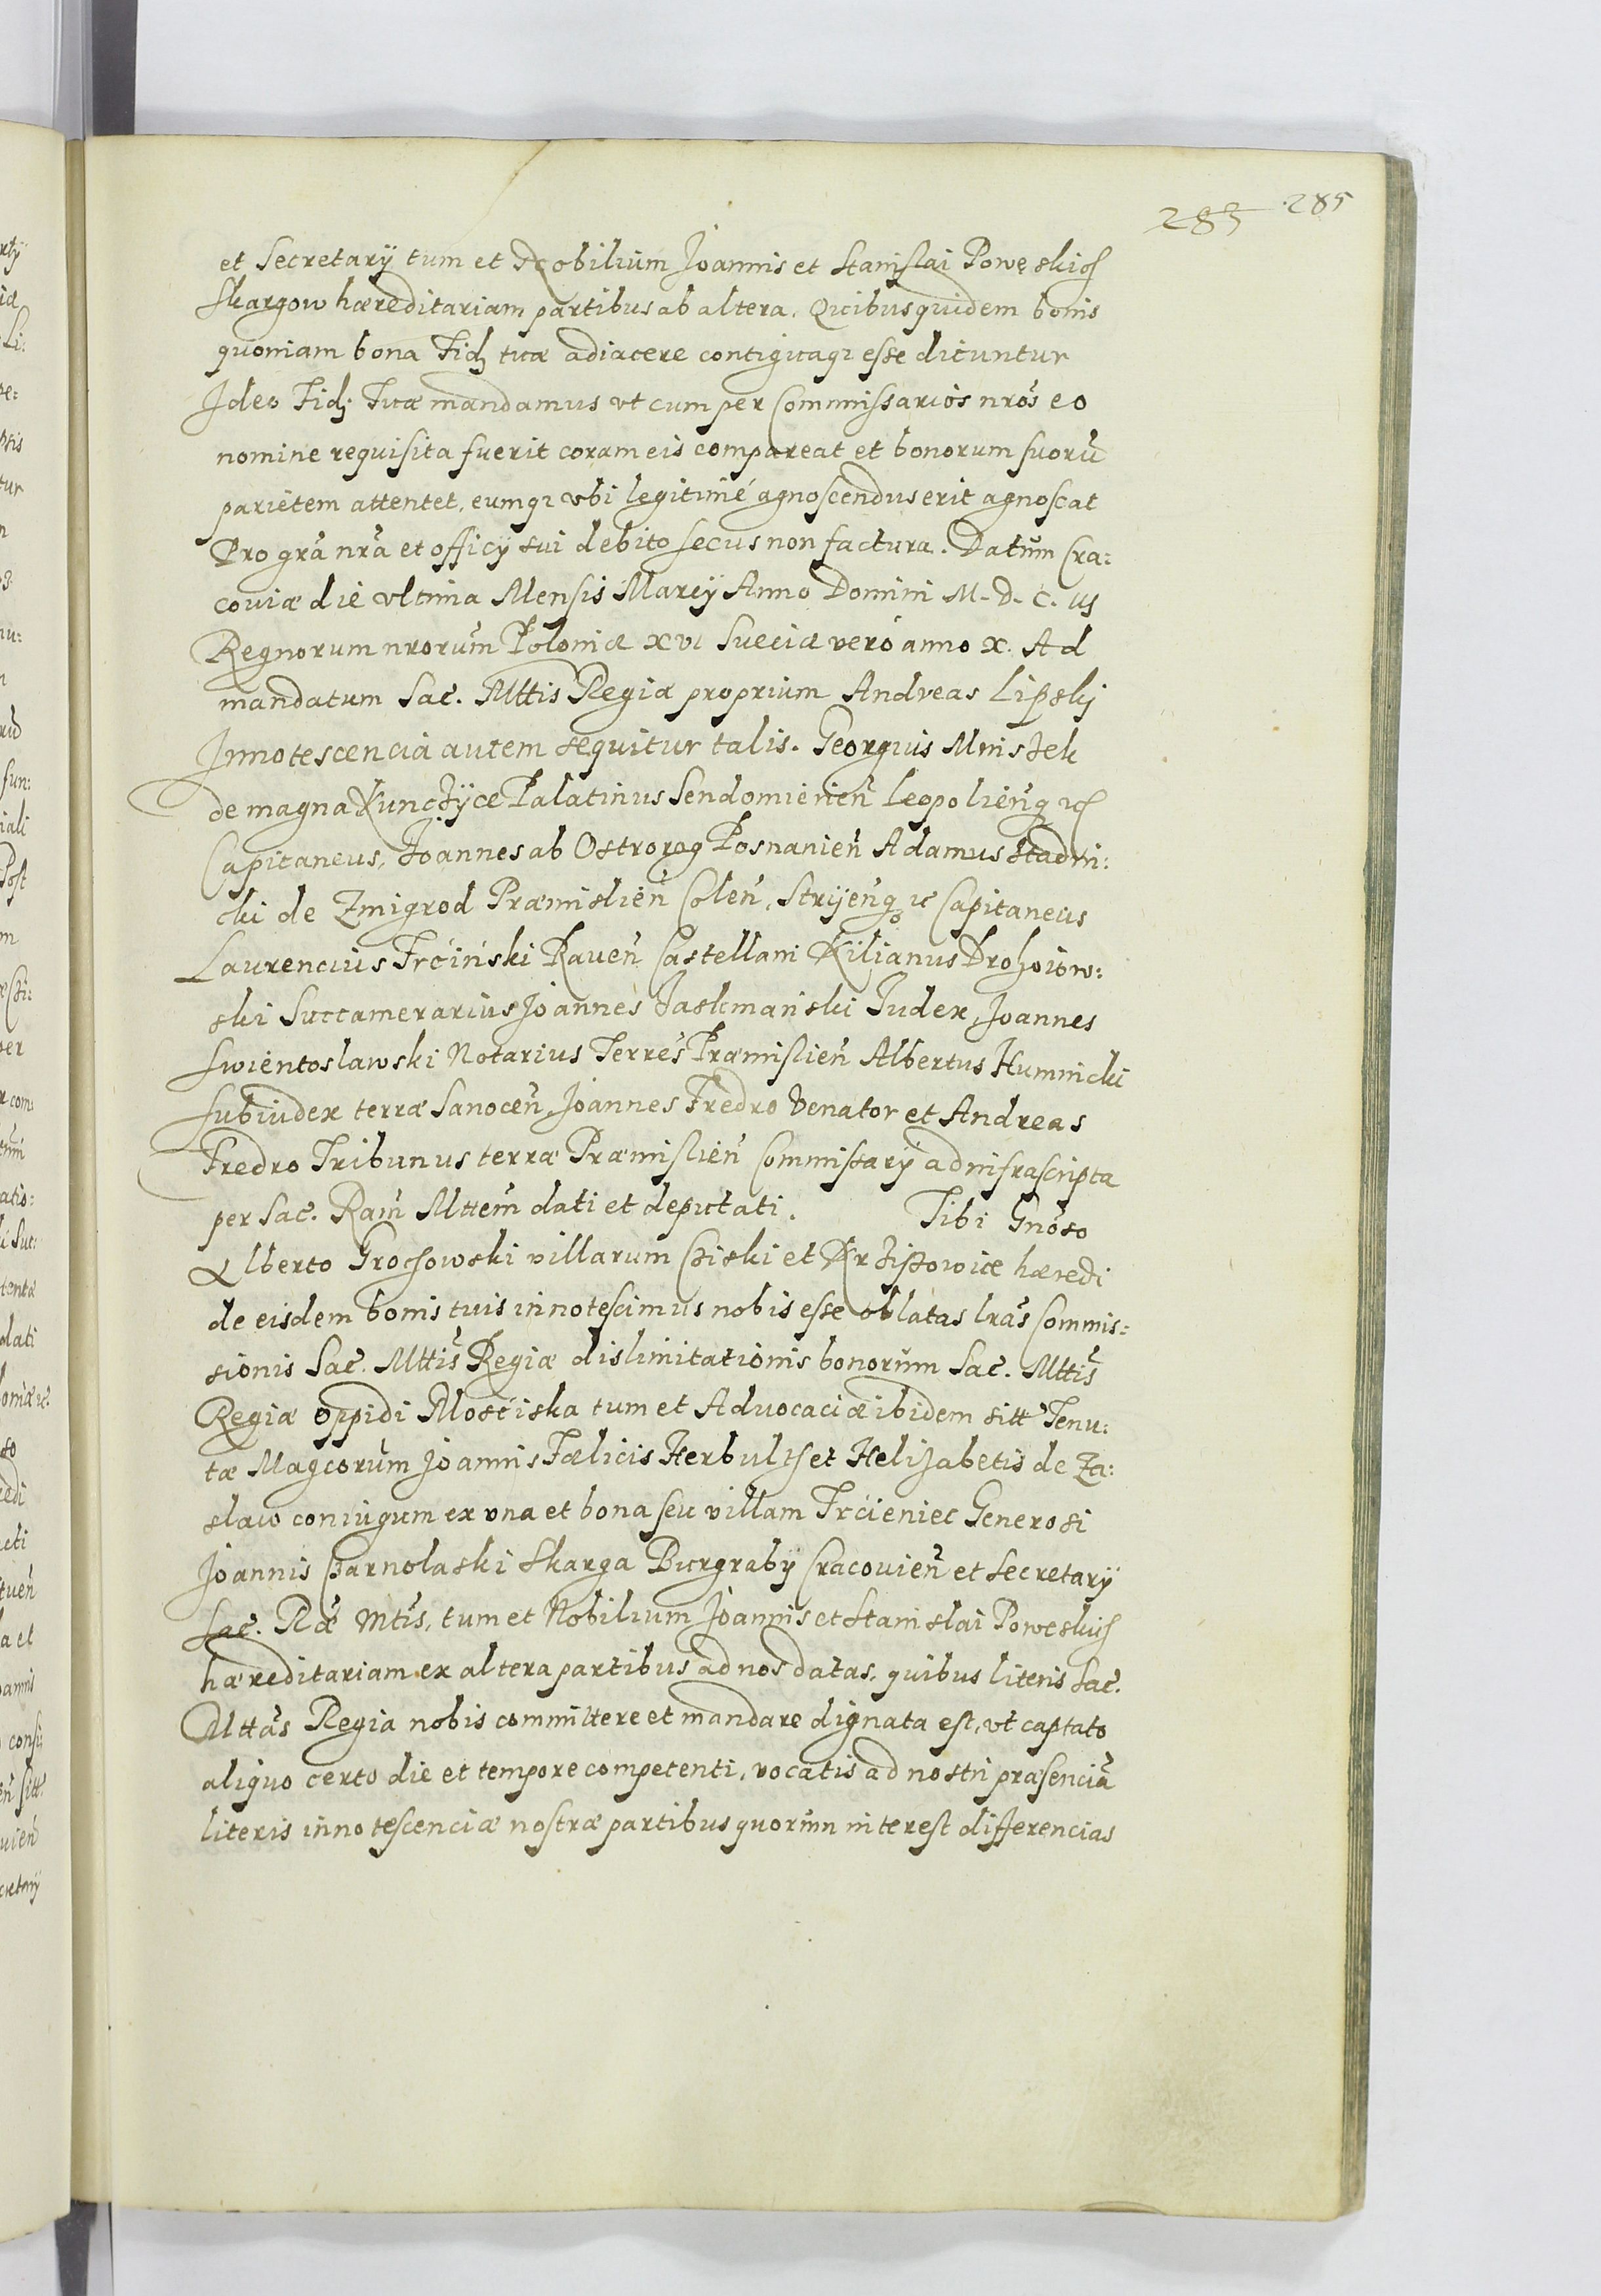 283 285
et Secretarÿ tum et Nobilium Joannis et Stanislai Powęskich
Skargow hæreditariam partibus ab altera. Quibus quidem bonis
quoniam bona Fidz tuæ adiacere contiguaqz esse dicuntur
Ideo Fidz Tuæ mandamus vt cum per Commissarios nrōs eo
nomine requisita fuerit coram eis compareat et bonorum suorū
parietem attentet, eumqz vbi legitimé agnoscendus erit agnoscat
Pro grā nrā et officÿ sui debito secus non factura. Datum Cra:
couiæ die vltima Mensis Marcÿ Anno Domini M. D. C. iij
Regnorum nrorum Poloniæ xvi Sueciæ vero anno x. Ad
mandatum Sac. Mttis Regiæ proprium Andreas Lipski
Innotescencia autem sequitur talis. Georgius Mniszek
de magna Kunczÿce Palatinus Sendomirien̄ Leopolien̄qz
Capitaneus, Joannes ab Ostrorog Posnanien̄ Adamus Stadni:
cki de Zmigrod Præmislien̄ Colen̄, Strÿen̄qz Capitaneus
Laurencius Trciński Rauen̄ Castellani Kilianus Drohoiow:
ski Succamerarius Joannes Jaskmański Judex, Joannes
Swientoslawski Notarius Terres Præmislien̄ Albertus Humnicki
Subiudex terræ Sanocen̄, Joannes Fredro Venator et Andreas
Fredro Tribunus terræ Præmislien̄ Commissarÿ ad infrascripta
per Sac. Ram̄ Mttem̄ dati et deputati. Tibi Gnoso
Alberto Grochowski villarum Chiski et hæredi
de eisdem bonis tuis innotescimus nobis esse oblatas lrās Commis:
sionis Sac. Mttis Regiæ dislimitationis bonorum Sac. Mttis
Regiæ oppidi Mosciska tum et Aduocaciæ ibidem sitt Tenu:
tæ Magcorum Joannis Fælicis Herbultz et Helizabetis de Za:
slaw coniugum ex vna et bona seu villam Trcieniec Generosi
Joannis Skarga Burgrabÿ Cracouien̄ et Secretarÿ
Sac. Ræ Mtis, tum et Nobilium Joannis et Stanislai Poweskich
hæreditariam ex altera partibus ad nos datas, quibus literis Sac.
Mttas Regia nobis committere et mandare dignata est, vt captato
aliquo certo die et tempore competenti, vocatis ad nostri præsenciā
literis innotescenciæ nostræ partibus quorum interest differencias